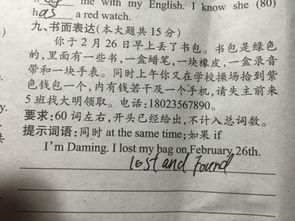 me with my English. I know she (80)
has a red watch.
九、书面表达(本大题共 15 分)
你于 2 月 26 日早上丢了书包。书包是绿色
的,里面有一些书,一盒蜡笔,一块橡皮,一盒录音
带和一块手表。同时上午你又在学校操场拾到紫
色钱包一个,内有钱若干及一个手机,请失主前来
5 班找大明领取。电话:18023567890。
要求:60 词左右,开头已经给出,不计入总词数。
提示词语:同时 at the same time;如果 if
I'm Daming. I lost my bag on February, 26th.
lost and found